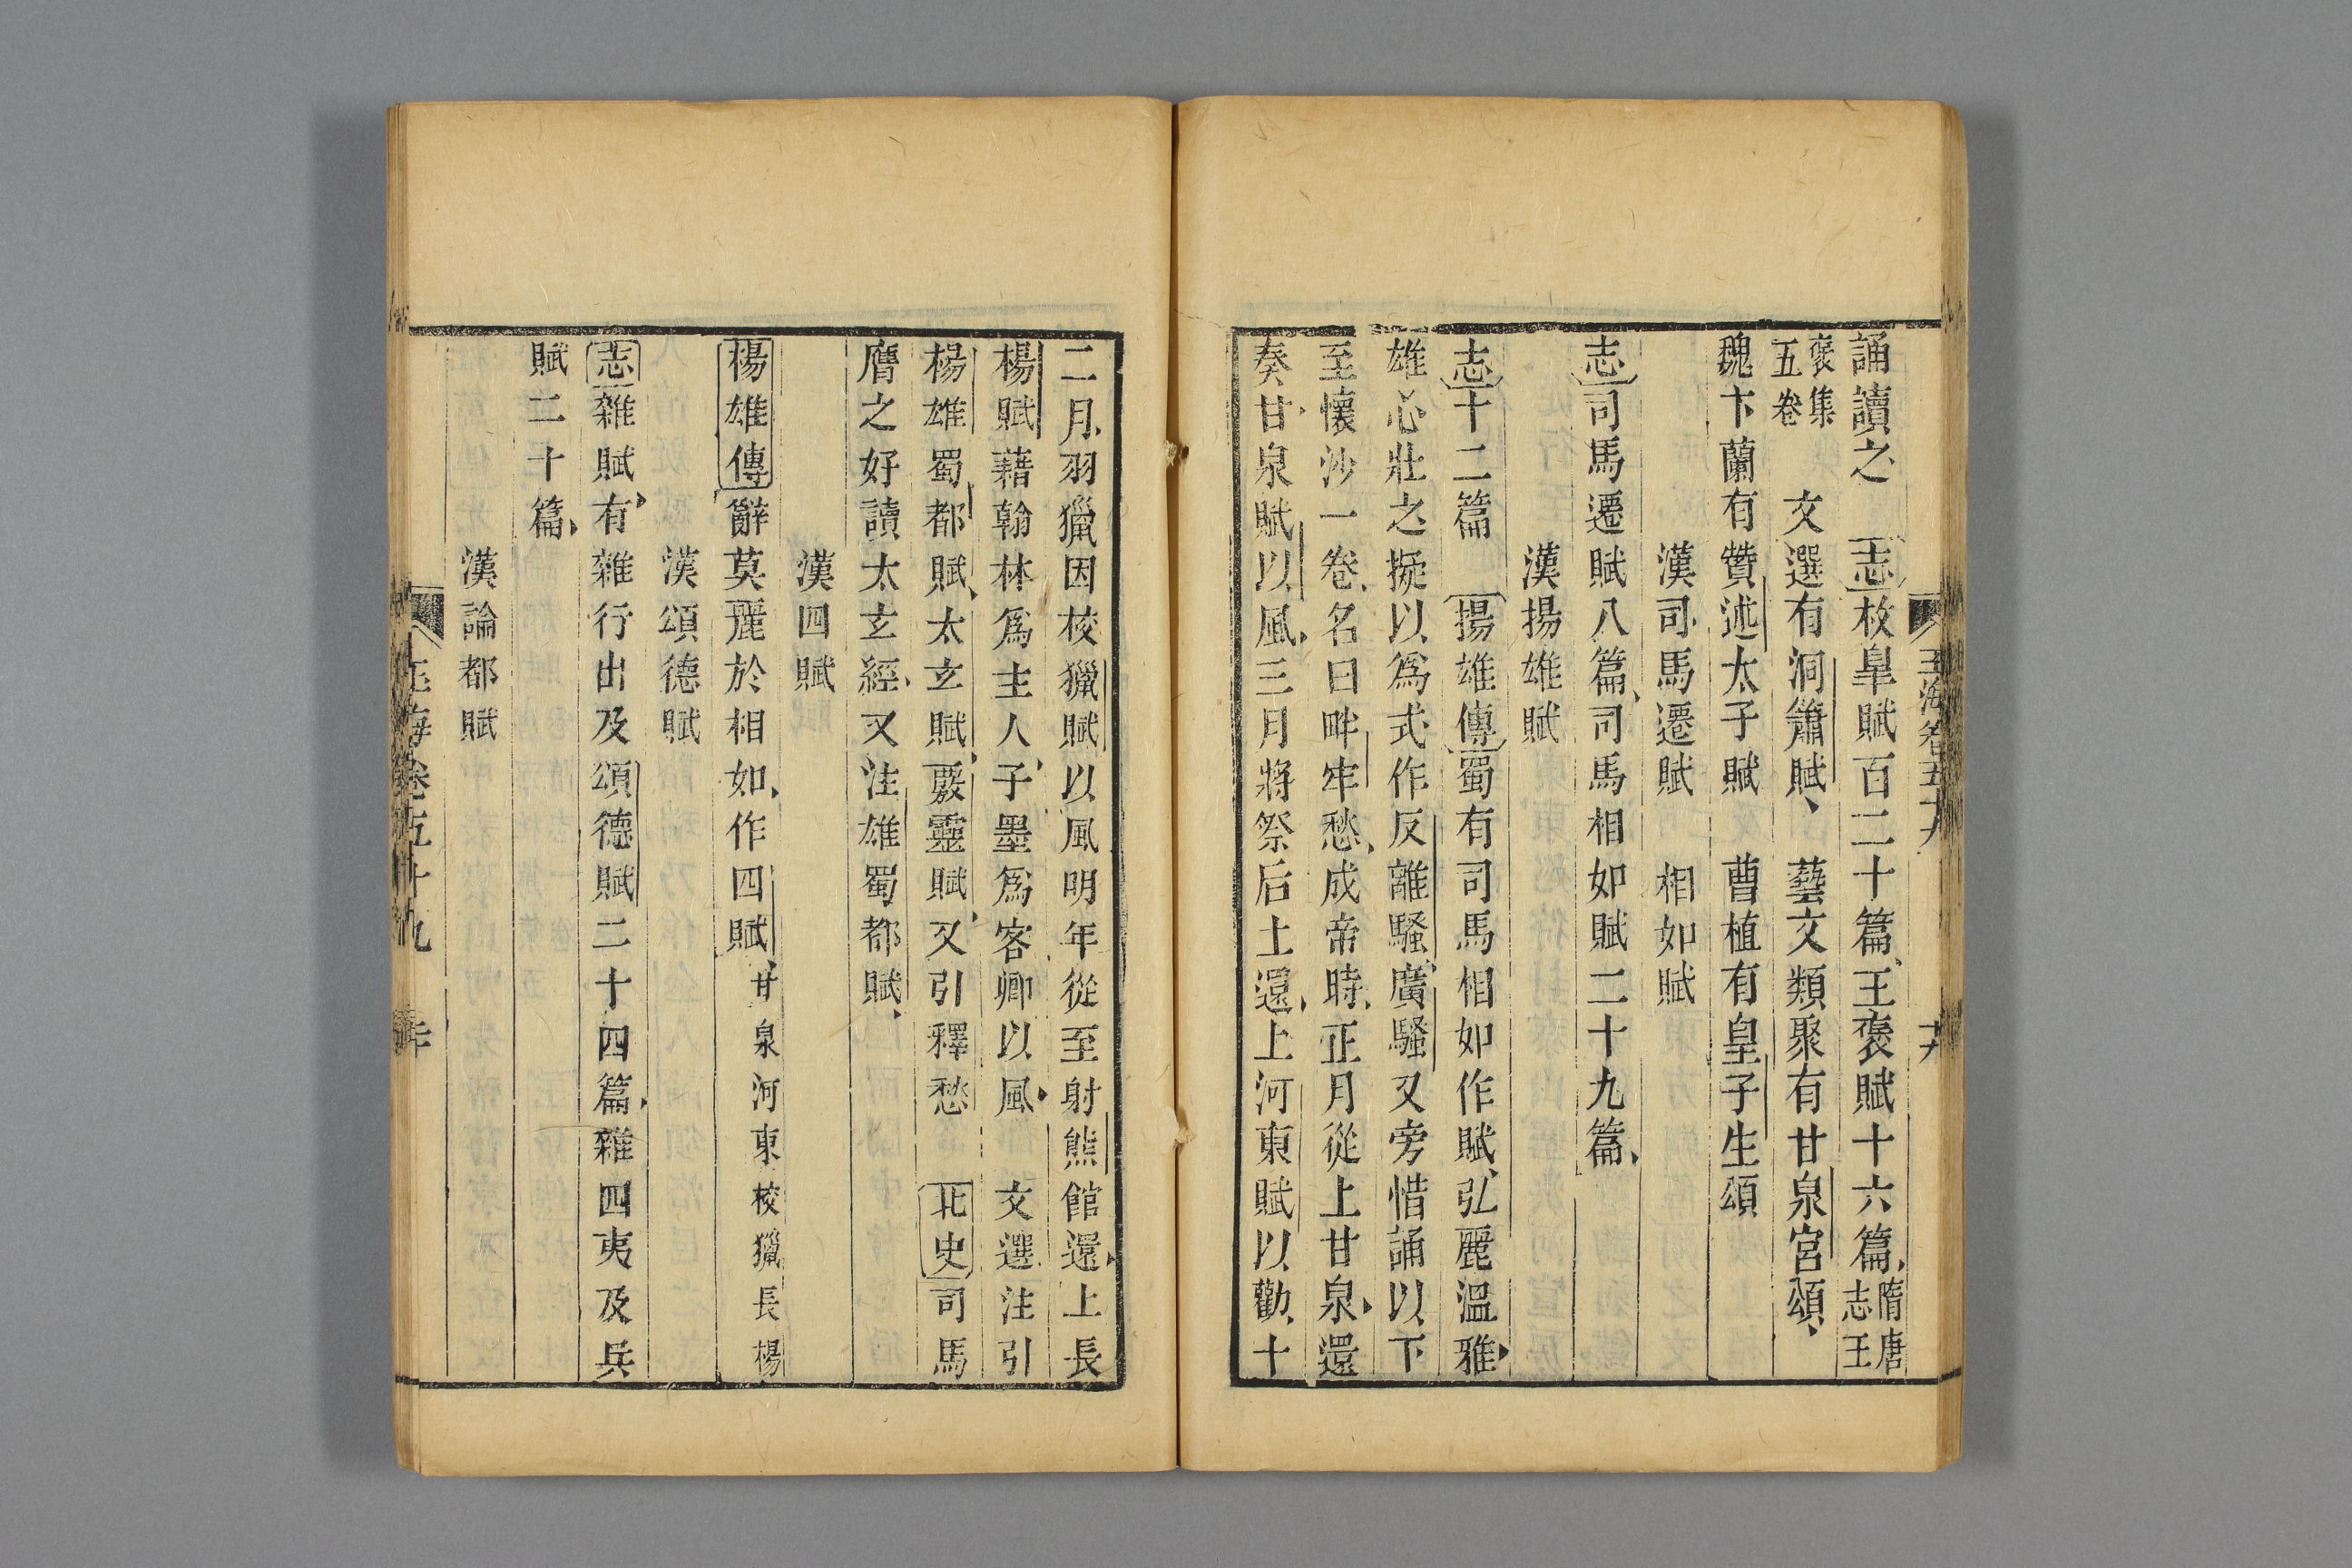 誦讀之 志枚臯賦百二十篇王褒賦十六篇隋唐志王
褒集五卷 文選有洞簫賦 藝文類聚有甘泉宮頌
魏卞蘭有贊述太子賦 曹植有皇子生頌
漢司馬遷賦 相如賦
志司馬遷賦八篇司馬相如賦二十九篇
漢揚雄賦
志十二篇 揚雄傳蜀有司馬相如作賦弘麗溫雅
雄心壯之擬以爲式作反離騷廣騷又旁惜誦以下
至懷沙一卷名曰畔牢愁成帝時正月從上甘泉還
奏甘泉賦以風三月將祭后土還上河東賦以勸十
玉海卷五十九
二月羽獵因校獵賦以風明年從至射熊館還上長
楊賦藉翰林爲主人子墨爲客卿以風 文選注引
楊雄蜀都賦太玄賦覈靈賦又引釋愁 北史司馬
膺之好讀太玄經又注雄蜀都賦
漢四賦
楊雄傳辭莫麗於相如作四賦甘泉河東校獵長楊
漢頌德賦
志雜賦有雜行出及頌德賦二十四篇雜四夷及兵
賦二十篇
漢論都賦
玉海卷五十九